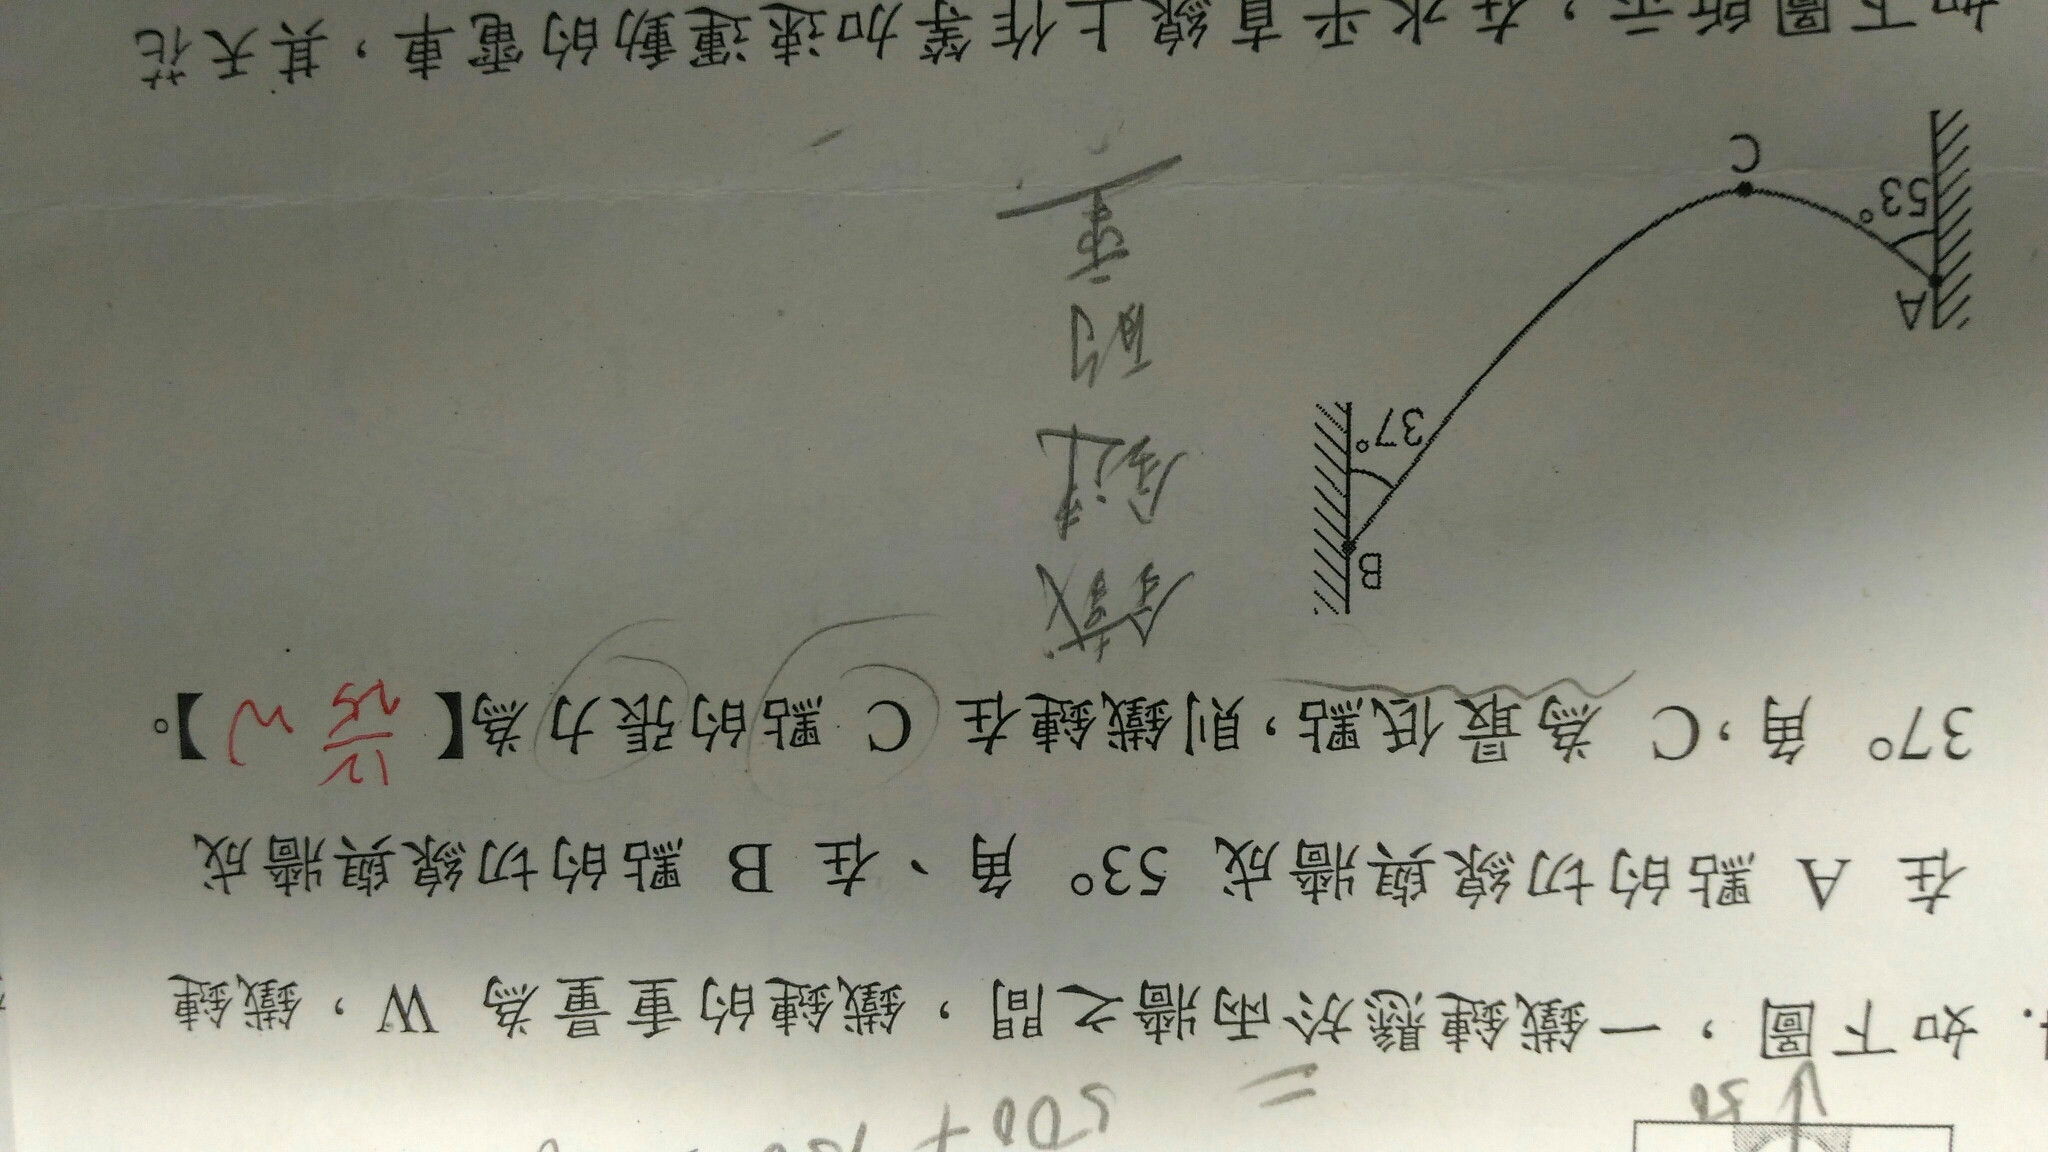 500 +
=
30
如下圖，一鐵鏈懸於兩牆之間，鐵鏈的重量為 W，鐵鏈
在 A 點的切線與牆成 53° 角、在 B 點的切線與牆成
37° 角，C 為最低點，則鐵鏈在 C 點的張力為【 12/25 W 】。
B
37°
A
53°
C
鐵
鏈
的
重
如下圖所示，在水平直線上作等加速運動的電車，其天花